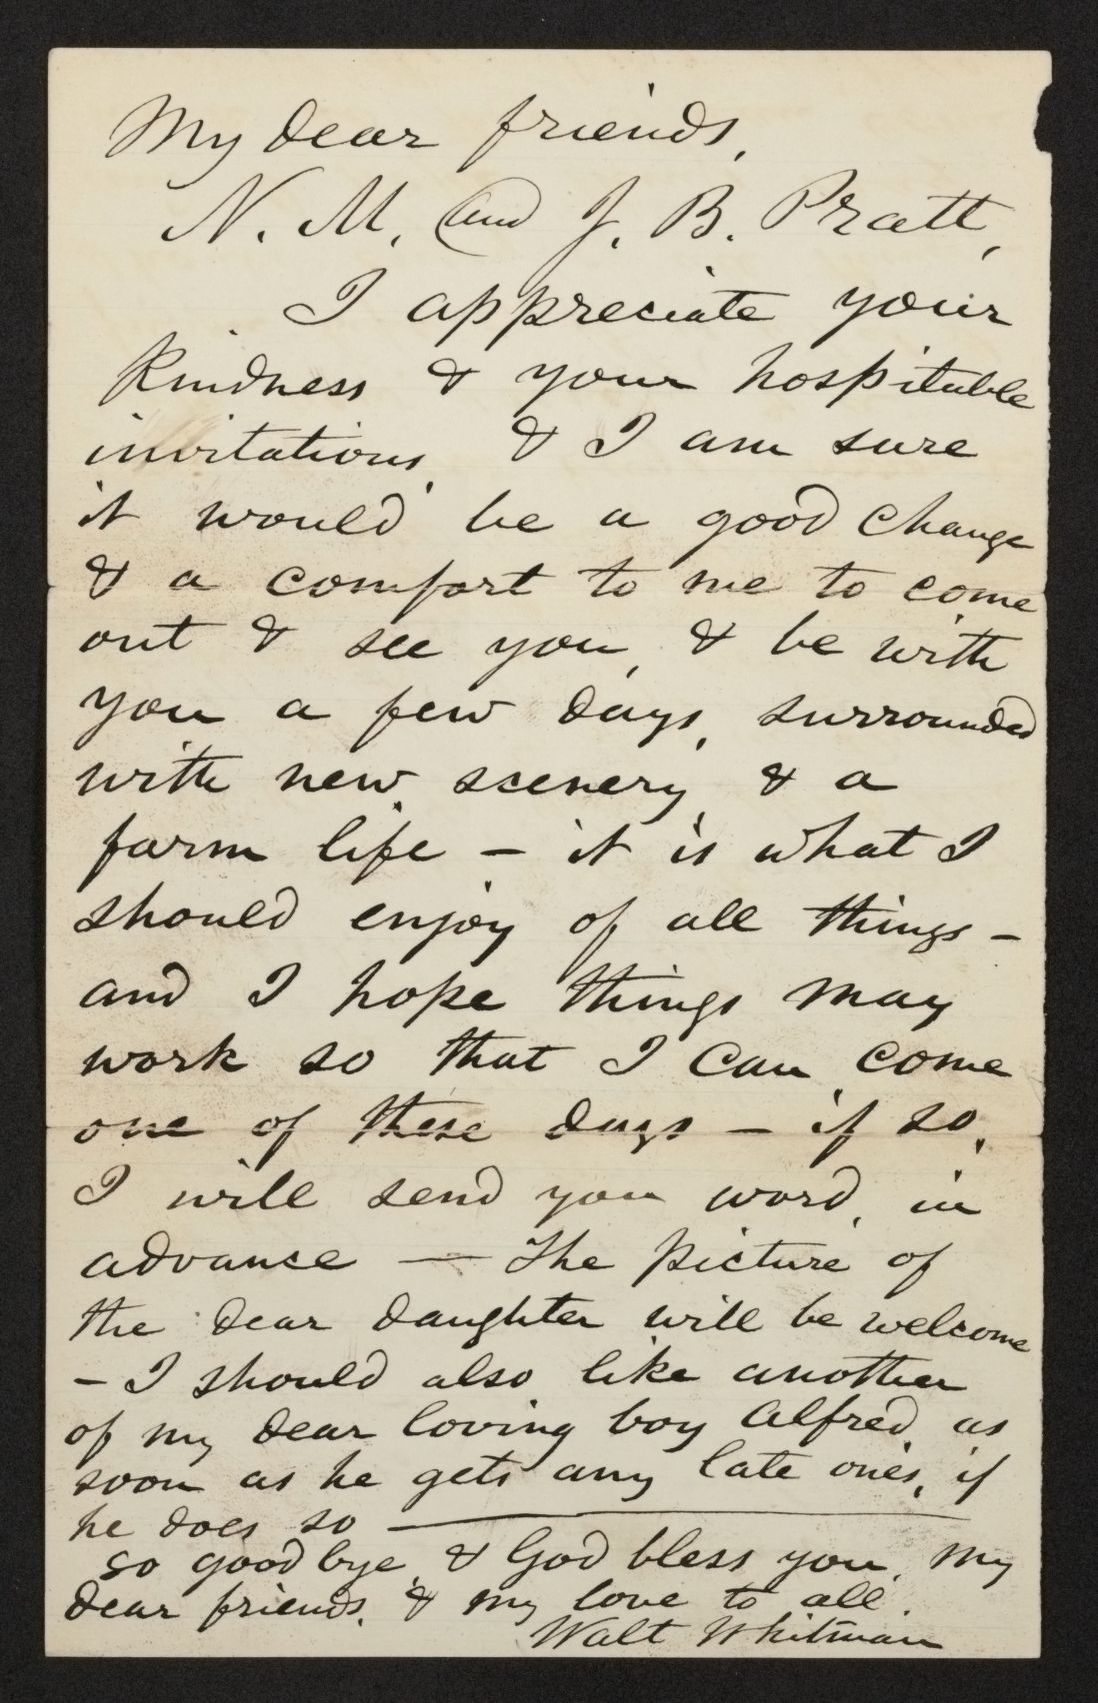 My dear friends,
N. M. and J. B. Pratt,
I appreciate your
kindness & your hospitable
invitations, & I am sure
it would be a good change
& a comfort to me to come
out & see you, & be with
you a few days, surrounded
with new scenery, & a
farm life – it is what I
should enjoy of all things –
and I hope things may
work so that I can come
one of these days – if so,
I will send you word, in
advance — The picture of
the dear daughter will be welcome
– I should also like another
of my dear loving boy Alfred, as
soon as he gets any late ones, if
he does so —
so good bye, & God bless you, my
dear friends, & my love to all.
Walt Whitman